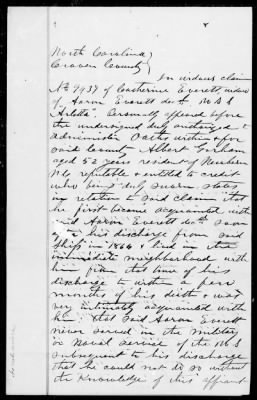 North Carolina }
Craven County }
In widows claim
No 7937 of Catherine Everett, widow
of Aaron Everett decd. U.S.S
Arletta. Personally appeared before
the undersigned duly authorized to
administer Oaths, within & for
said County Albert Gorham
aged 52 years resident of Newbern
N.C reputable & entitled to credit
who being duly sworn, states
in relation to said claim that
he first became acquainted with
said Aaron Everett decd soon
his discharge from said
Ship in 1864 & lived in the
immediate neighborhood with
him from the time of his
discharge to within a few
months of his death & was
very intimately acquainted with
him; that said Aaron Everett
never served in the military
or Naval service of the U.S
subsequent to his discharge
that he could not do so without
the knowledge of this affiant